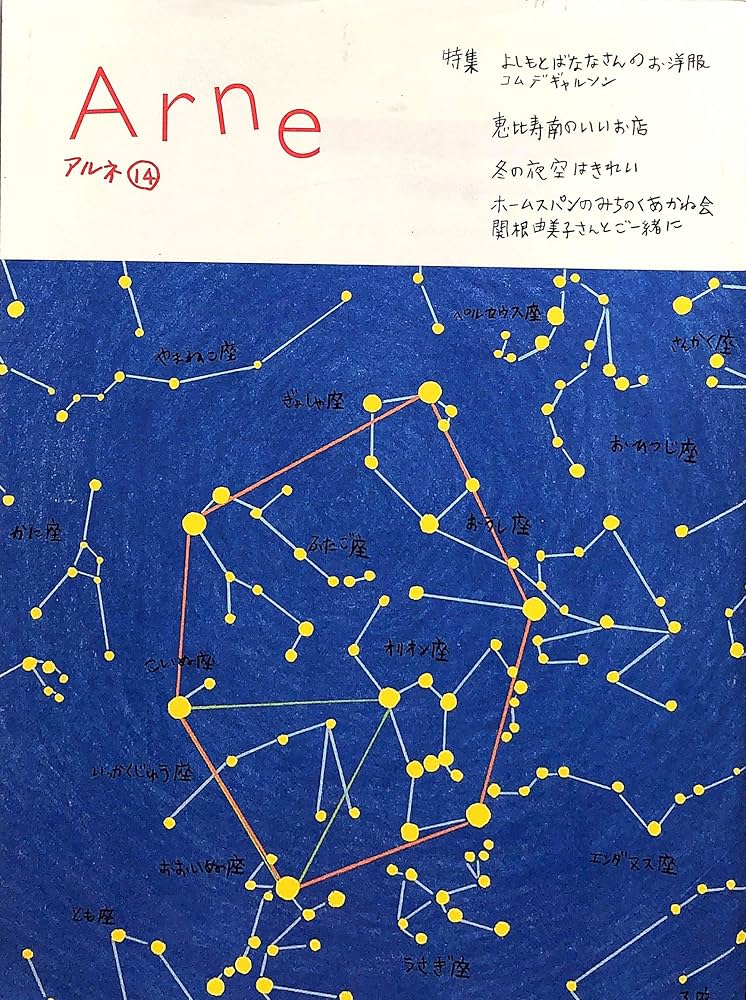 Arne
アルネ⑭
特集 よしもとばななさんのお洋服
コムデギャルソン
恵比寿南のいいお店
冬の夜空はきれい
ホームスパンのみちのくあかね会
関根由美子さんとご一緒に
ペルセウス座
さんかく座
やまねこ座
ぎょしゃ座
おひつじ座
かに座
おうし座
ふたご座
こいぬ座
オリオン座
いっかくじゅう座
おおいぬ座
エリダヌス座
とも座
うさぎ座